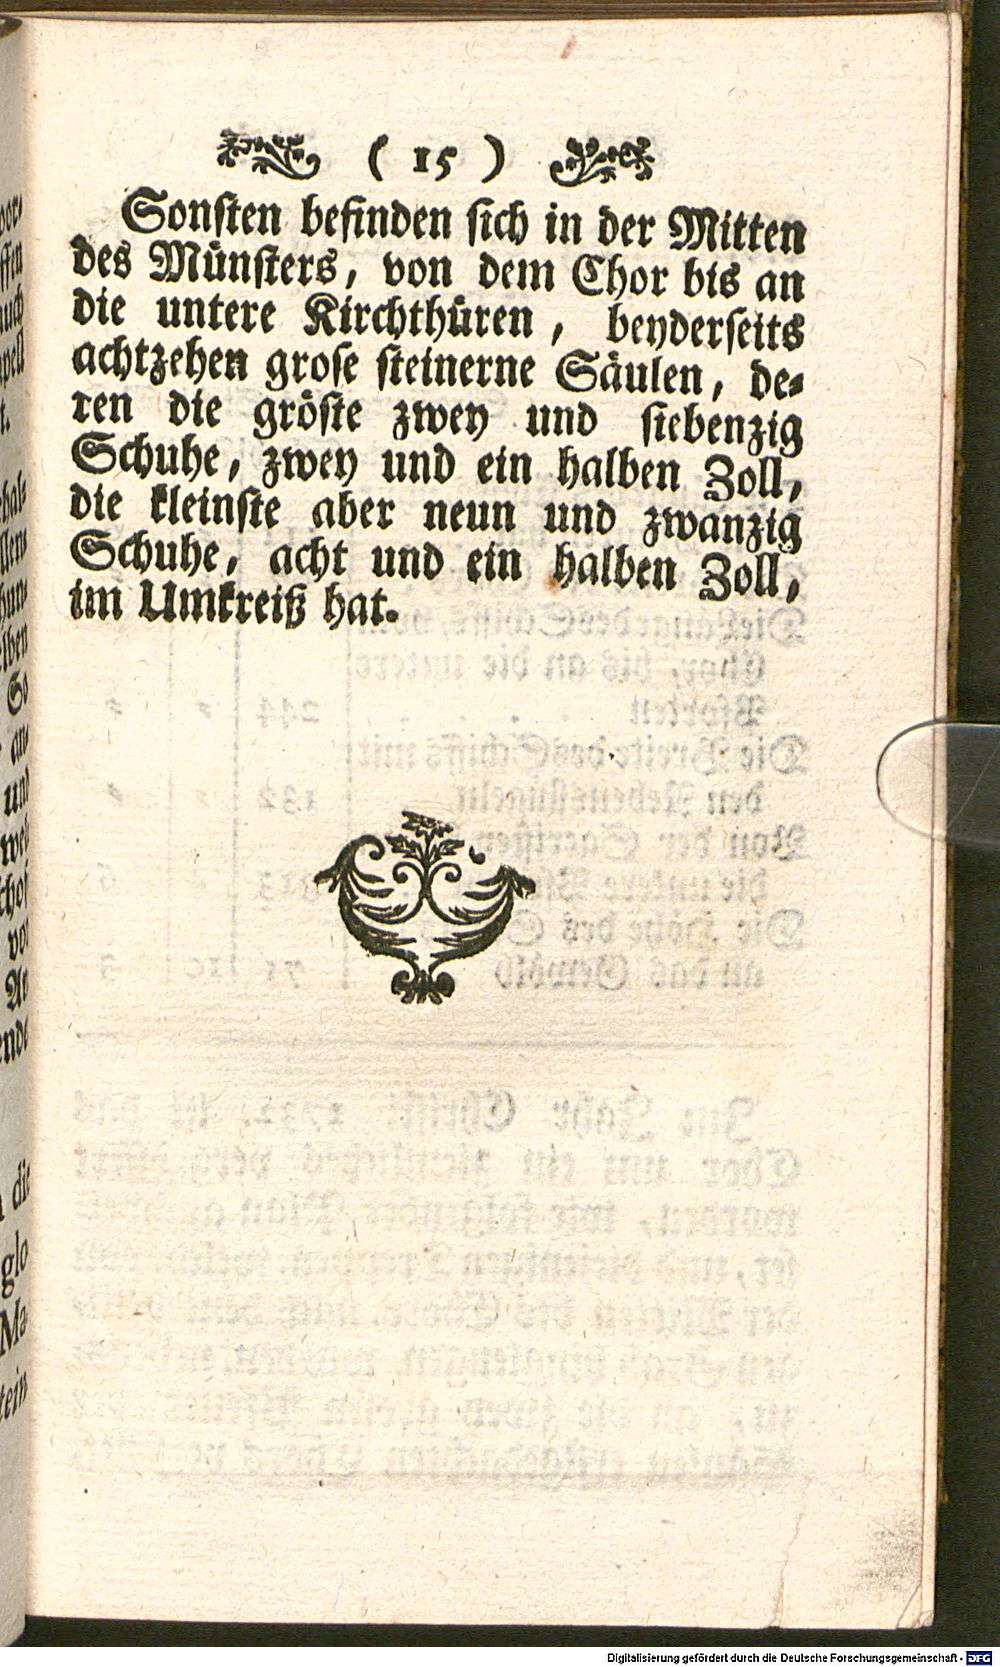 ( 15 )
Sonsten befinden sich in der Mitten
des Münsters, von dem Chor bis an
die untere Kirchthüren, beyderseits
achtzehen grose steinerne Säulen, de-
ren die gröste zwey und siebenzig
Schuhe, zwey und ein halben Zoll,
die kleinste aber neun und zwanzig
Schuhe, acht und ein halben Zoll,
im Umkreiß hat.
Digitalisierung gefördert durch die Deutsche Forschungsgemeinschaft - DFG